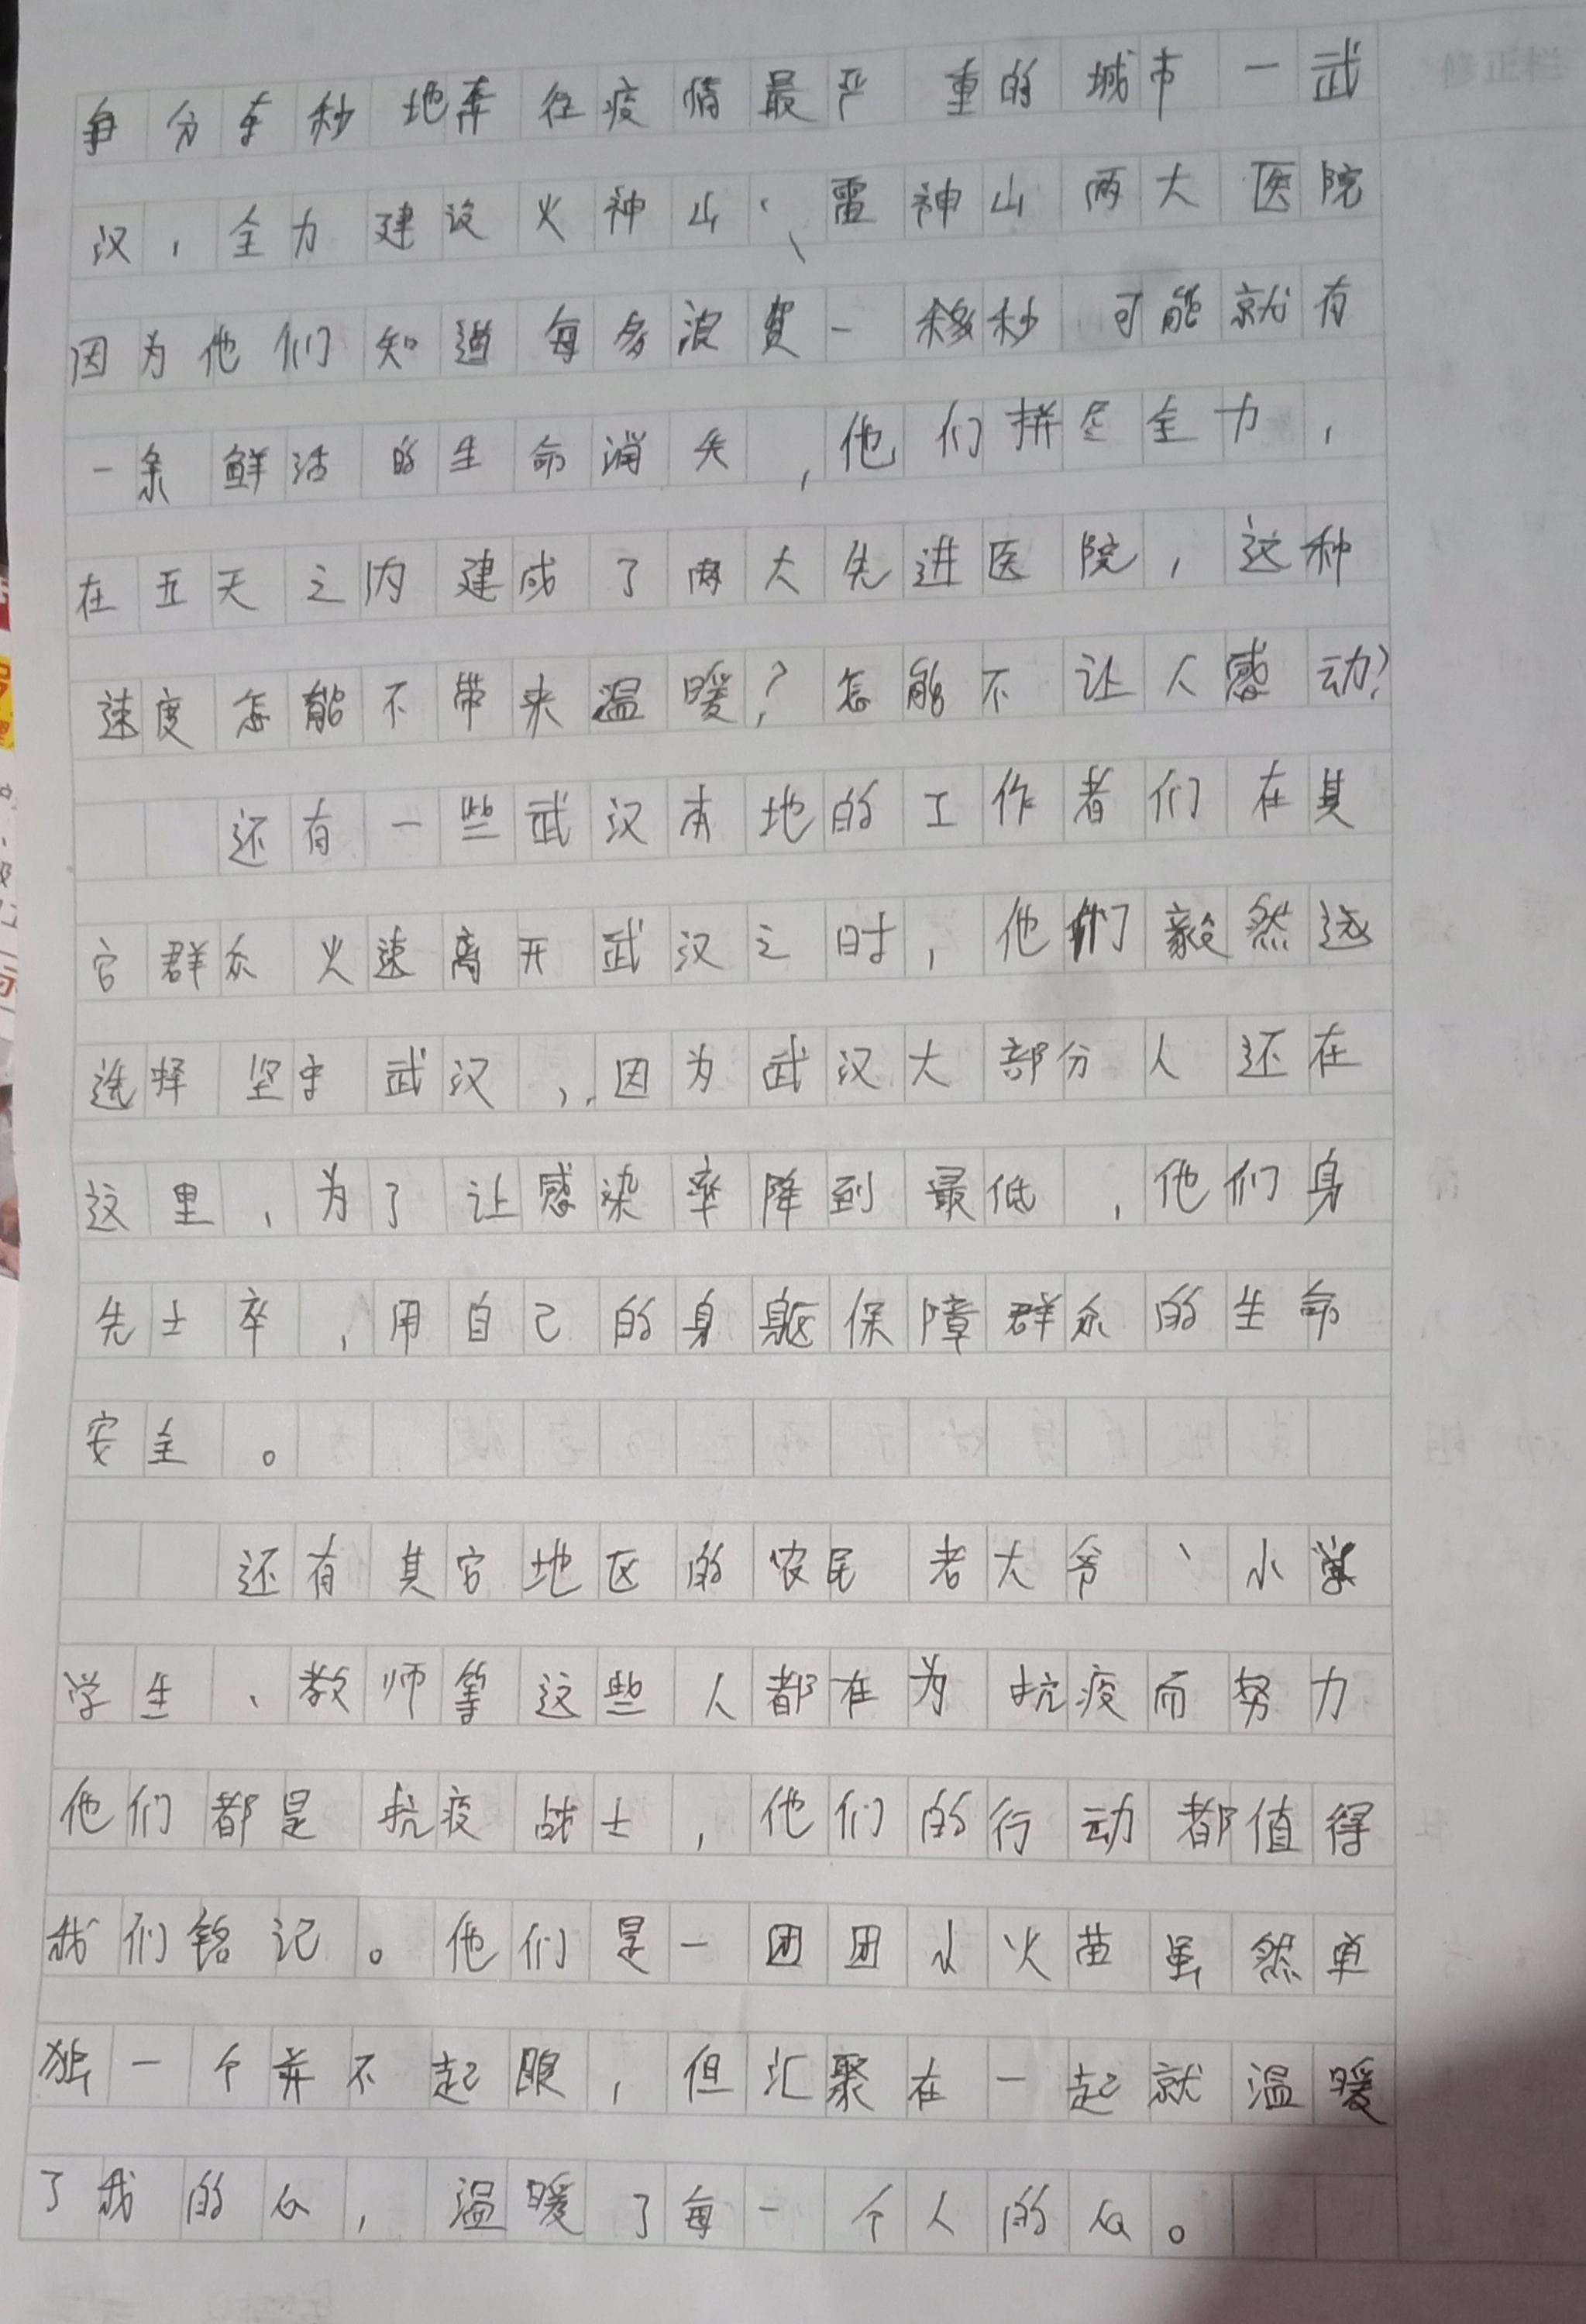 修正栏
争分夺秒地奔往疫情最严重的城市一武
汉，全力建设火神山、雷神山两大医院
因为他们知道每多浪费一秒可能就有
一条鲜活的生命消失，他们拼尽全力，
在五天之内建成了两大先进医院，这种
速度怎能不带来温暖？怎能不让人感动？
还有一些武汉本地的工作者们在其
它群众火速离开武汉之时，他们毅然选
选择坚守武汉，因为武汉大部分人还在
这里，为了让感染率降到最低，他们身
先士卒，用自己的身躯保障群众的生命
安全。
还有其它地区的农民老大爷、小学
学生、教师等这些人都在为抗疫而努力
他们都是抗疫战士，他们的行动都值得
我们铭记。他们是一团团小火苗虽然单
独一个并不起眼，但汇聚在一起就温暖
了我的心，温暖了每一个人的心。